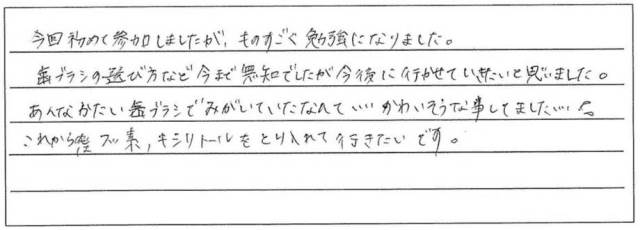 今回初めて参加しましたが、ものすごく勉強になりました。
歯ブラシの選び方など今まで無知でしたが今後に行かせていきたいと思いました。
あんなかたい歯ブラシでみがいていたなんて……かわいそうな事してました…
これから フッ素、キシリトールをとり入れて行きたいです。